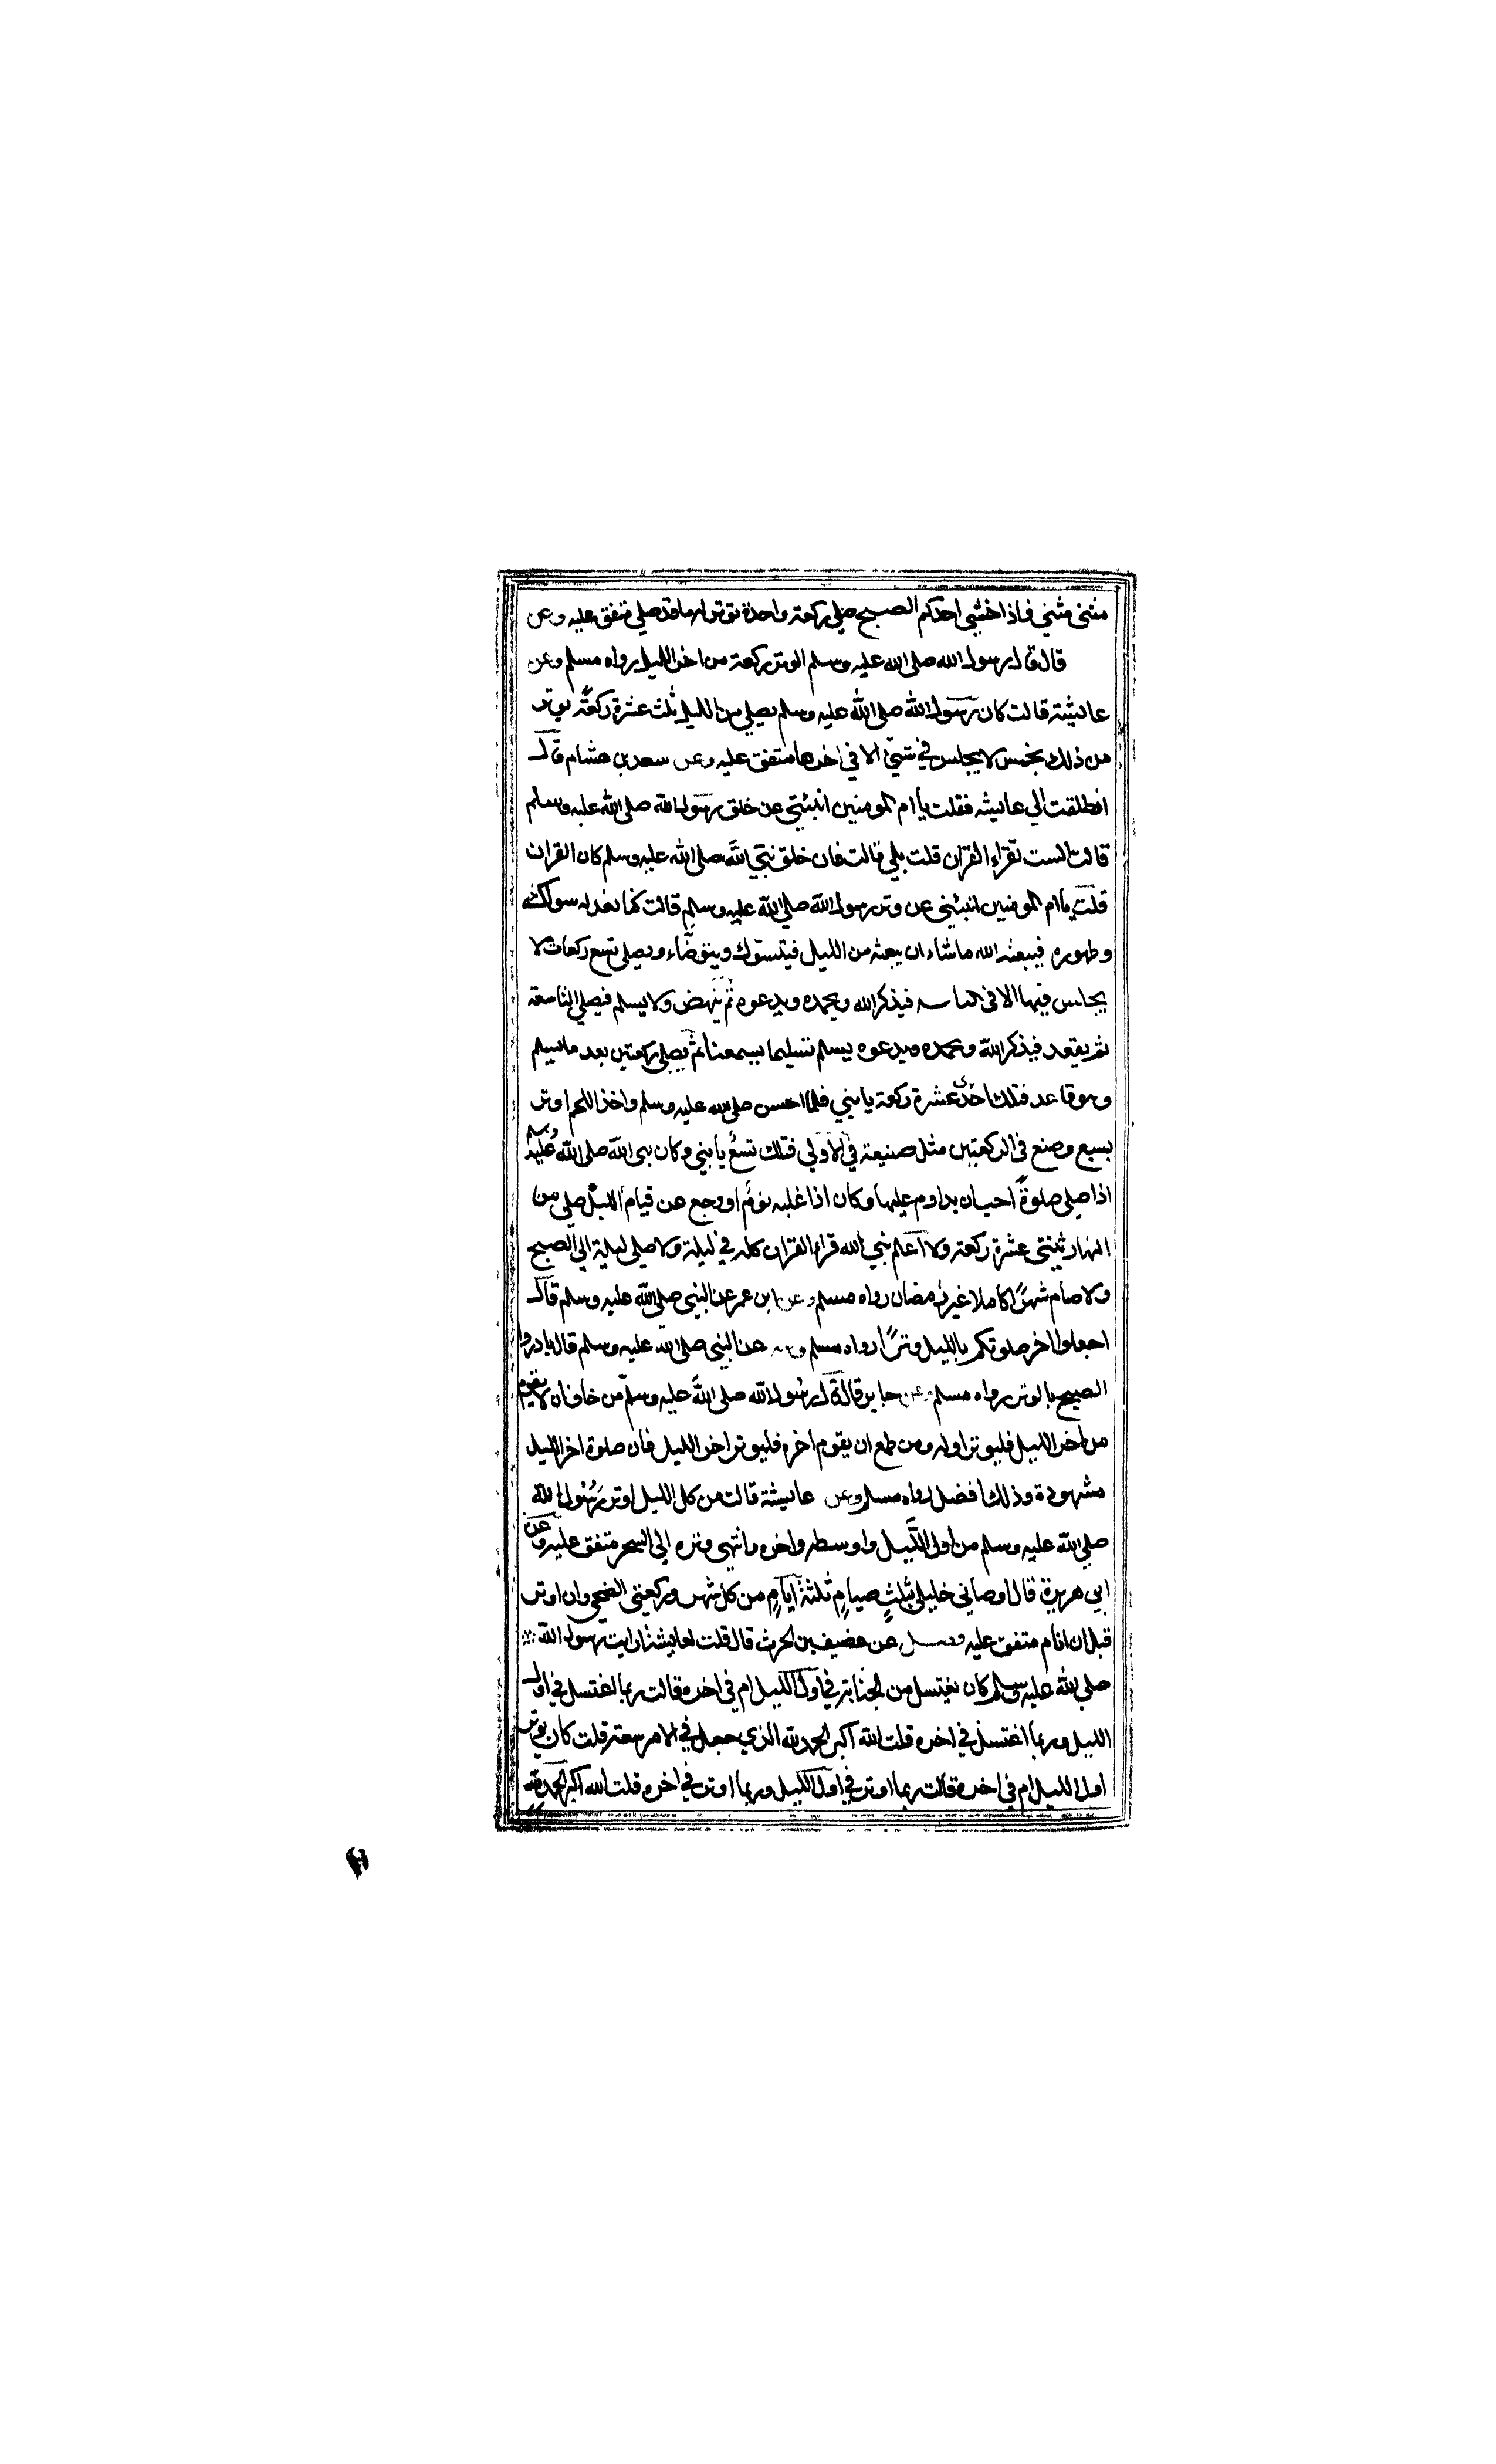 مثنى مثني فاذا خشي احدكم الصبح صلي ركعة واحدة توتر له ما قد صلي متفق عليه وعن
قال قال رسول الله صلى الله عليه وسلم الوتر ركعة من اخر الليل رواه مسلم وعن
عايشة قالت كان رسول الله صلى الله عليه وسلم يصلي من الليل ثلث عشرة ركعة يوتر
من ذلك بخمس لا يجلس في شيئ الا في اخرها متفق عليه وعن سعد بن هشام قال
انطلقت الي عايشه فقلت يا ام المومنين انبئيني عن خلق رسول الله صلى الله عليه وسلم
قالت الست تقراء القران قلت بلي قالت فان خلق نبي الله صلى الله عليه وسلم كان القران
قلت يا ام المومنين انبئيني عن وتر رسول الله صلى الله عليه وسلم قالت كنا نعد له سواكه
وطهوره فيبعثه الله ما شاء ان يبعثه من الليل فيتسوك ويتوضاء ويصلي تسع ركعات لا
يجلس فيها الا في الثامنه فيذكر الله ويحمده ويدعوه ثم ينهض ولا يسلم فيصلي التاسعة
ثم يقعد فيذكر الله ويحمده ويدعوه يسلم تسليما يسمعنا ثم يصلي ركعتين بعد ما يسلم
وهو قاعد فتلك احدى عشرة ركعة يا بني فلما احسن صلى الله عليه وسلم واخذ اللحم اوتر
بسبع وصنع في الركعتين مثل صنيعة في الاولي فتلك تسع يا بني وكان نبي الله صلى الله عليه وسلم
اذا صلى صلوة احب ان يداوم عليها وكان اذا غلبه نوم او وجع عن قيام الليل صلي من
النهار ثنتي عشرة ركعة ولا اعلم نبي الله قراء القران كله في ليلة ولا صلي ليلة الي الصبح
ولا صام شهرا كاملا غير رمضان رواه مسلم وعن ابن عمر عن النبي صلى الله عليه وسلم قال
اجعلوا اخر صلوتكم بالليل وترا رواه مسلم وعنه عن النبي صلى الله عليه وسلم قال بادروا
الصبح بالوتر رواه مسلم وعن جابر قال قال رسول الله صلى الله عليه وسلم من خاف ان لا يقوم
من اخر الليل فليوتر اوله ومن طمع ان يقوم اخره فليوتر اخر الليل فان صلوة اخر الليل
مشهودة وذلك افضل رواه مسلم وعن عايشة قالت من كل الليل اوتر رسول الله
صلي الله عليه وسلم من اول الليل واوسطه واخره وانتهى وتره الي السحر متفق عليه وعن
ابي هريرة قال اوصاني خليلي بثلث صيام ثلثة ايام من كل شهر وركعتي الضحي وان اوتر
قبل ان انام متفق عليه فصل عن غضيف بن الحرث قال قلت لعايشة ارايت رسول الله
صلي الله عليه وسلم كان يغتسل من الجنابة في اول الليل ام في اخره قالت ربما اغتسل في اول
الليل وربما اغتسل في اخره قلت الله اكبر الحمد لله الذي جعل في الامر سعة قلت كان يوتر
اول الليل ام في اخره قالت ربما اوتر في اول الليل وربما اوتر في اخره قلت الله اكبر الحمد لله